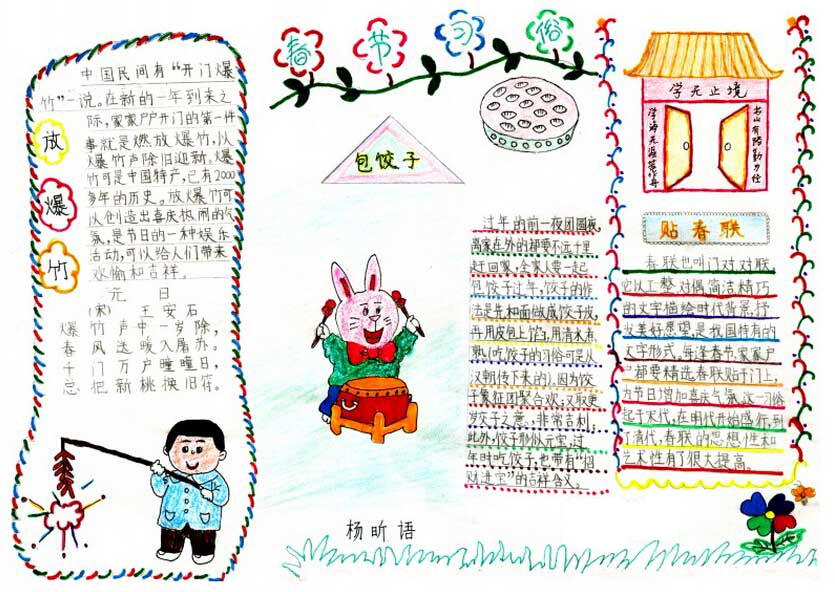 春节习俗
放爆竹
中国民间有“开门爆
竹”一说。在新的一年到来之
际,家家户户开门的第一件
事就是燃放爆竹,以
爆竹声除旧迎新。爆
竹可是中国特产,已有2000
多年的历史。放爆竹可
以创造出喜庆热闹的气
氛,是节日的一种娱乐
活动,可以给人们带来
欢愉和吉祥。
元日
(宋) 王安石
爆竹声中一岁除,
春风送暖入屠苏。
千门万户曈曈日,
总把新桃换旧符。
包饺子
过年的前一夜团圆夜,
离家在外的都要不远千里
赶回家,全家人要一起
包饺子过年,饺子的作
法是先和面做成饺子皮,
再用皮包上馅,用清水煮
熟(吃饺子的习俗可是从
汉朝传下来的)。因为饺
子象征团聚合欢;又取更
岁交子之意,非常吉利。
此外,饺子形似元宝,过
年时吃饺子,也带有“招
财进宝”的吉祥含义。
杨昕语
学无止境
书山有路勤为径
学海无涯苦作舟
贴春联
春联也叫门对,对联,
它以工整、对偶、简洁、精巧
的文字描绘时代背景,抒
发美好愿望,是我国特有的
文学形式。每逢春节,家家户
户都要精选春联贴于门上,
为节日增加喜庆气氛。这一习俗
起于宋代,在明代开始盛行,到
了清代,春联的思想性和
艺术性有了很大提高。